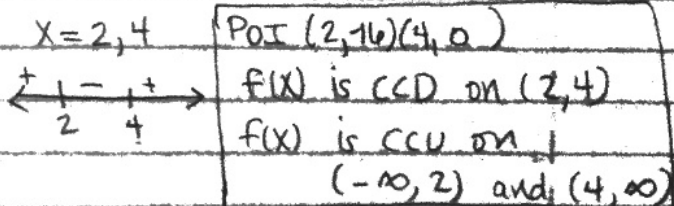 x = 2, 4
+ - +
2 4
POI (2,-16)(4,0)
f(x) is CCD on (2,4)
f(x) is CCU on
(-∞, 2) and (4, ∞)